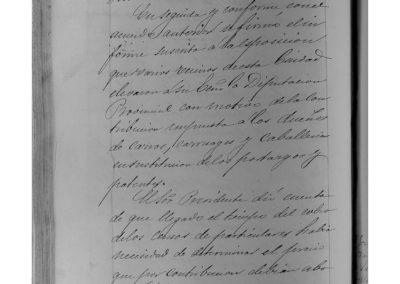 En seguida y conforme con el
acuerdo anterior se firmó el in
forme suscrito a la esposicion
que varios vecinos de esta Ciudad
elevaron a Su Exma Diputacion
Provincial con motivo de la con
tribucion impuesta a los dueños
de carros, carruages y caballerias
en sustitucion de los portazgos y
patentes.
El Sor. Presidente dió cuenta
de que llegado el tiempo del cobro
de los censos de particulares habia
necesidad de determinar el precio
que por contribucion debian abo